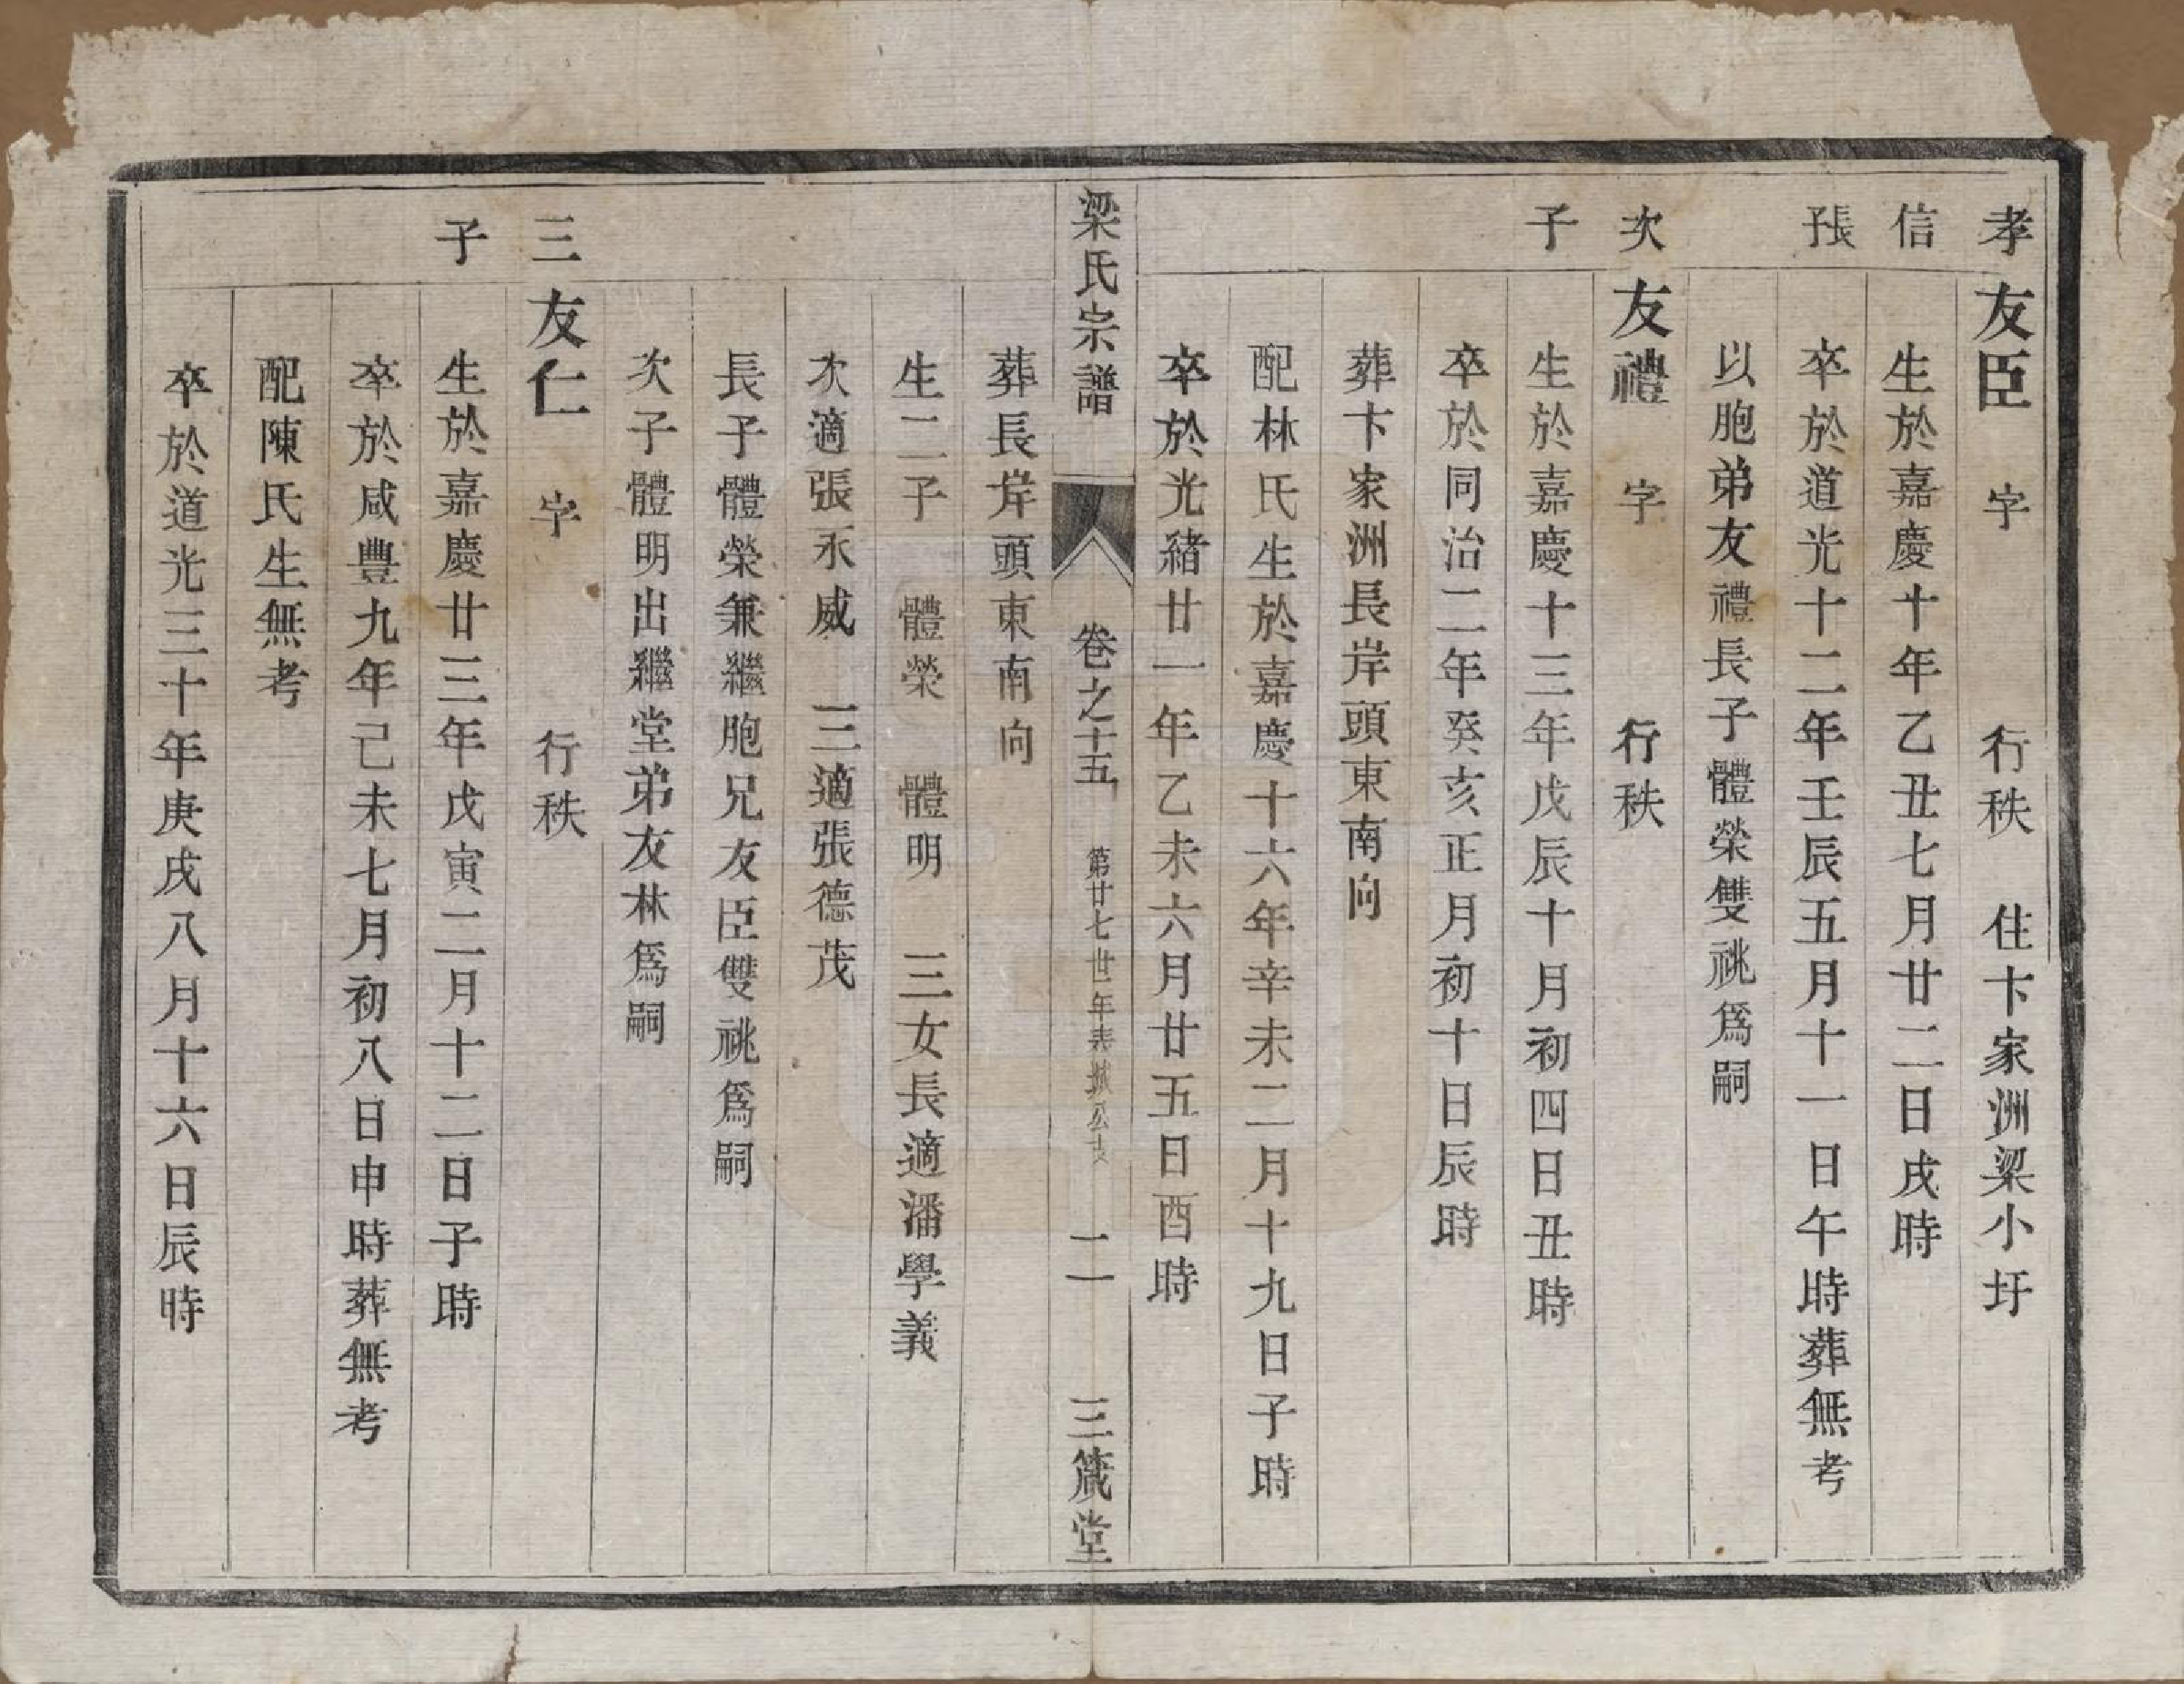 孝友臣　字　行秩　住卞家洲梁小圩
信　生於嘉慶十年乙丑七月廿二日戌時
長子　卒於道光十二年壬辰五月十一日午時葬無考
以胞弟友禮長子體榮雙祧爲嗣
次友禮　字　行秩
子　生於嘉慶十三年戊辰十月初四日丑時
卒於同治二年癸亥正月初十日辰時
葬卞家洲長岸頭東南向
配林氏生於嘉慶十六年辛未二月十九日子時
卒於光緒廿一年乙未六月廿五日酉時
梁氏宗譜　卷之十五　第廿七世年表　公支　二一　三箴堂
葬長岸頭東南向
生二子　體榮　體明　三女長適潘學義
次適張永威　三適張德茂
長子體榮兼繼胞兄友臣雙祧爲嗣
次子體明出繼堂弟友林爲嗣
三友仁　字　行秩
子　生於嘉慶廿三年戊寅二月十二日子時
卒於咸豐九年己未七月初八日申時葬無考
配陳氏生無考
卒於道光三十年庚戌八月十六日辰時